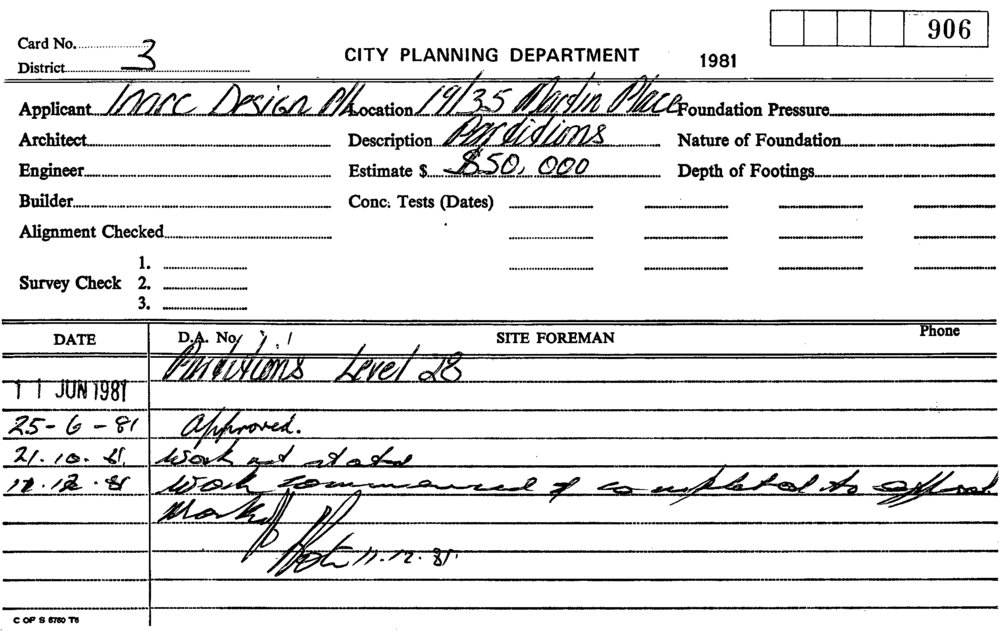 906
Card No.
District 3
CITY PLANNING DEPARTMENT 1981
Applicant Inarc Design P/L Location 19/35 Martin Place Foundation Pressure
Architect Description Partitions Nature of Foundation
Engineer Estimate $ $50,000 Depth of Footings
Builder Conc. Tests (Dates)
Alignment Checked
1.
Survey Check 2.
3.
DATE D.A. No. SITE FOREMAN Phone
Partitions Level 28
11 JUN 1981
25-6-81 Approved.
21.10.81. Work not started
11.12.81 Work commenced & completed to approval.
11.12.81.
C OF S 6760 T6